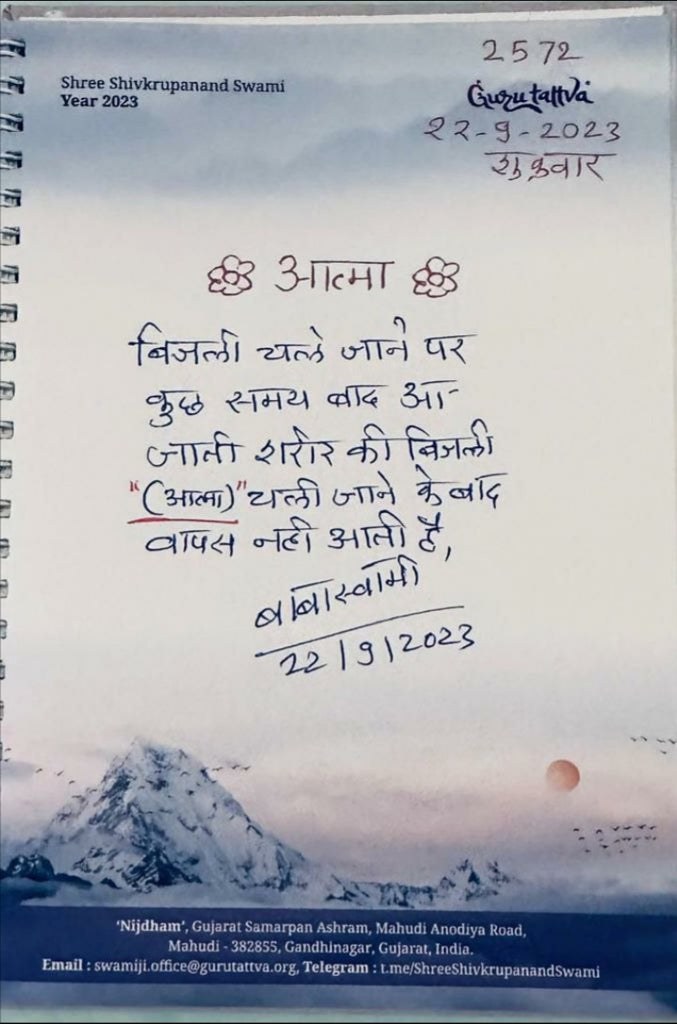 2572
Shree Shivkrupanand Swami
Year 2023
Gurutattva
22-9-2023
शुक्रवार
आत्मा
बिजली चले जाने पर
कुछ समय बाद आ-
जाती शरीर की बिजली
"(आत्मा)" चली जाने के बाद
वापस नही आती है,
बाबास्वामी
22/9/2023
'Nijdham', Gujarat Samarpan Ashram, Mahudi Anodiya Road,
Mahudi - 382855, Gandhinagar, Gujarat, India.
Email : swamiji.office@gurutattva.org, Telegram : t.me/ShreeShivkrupanandSwami